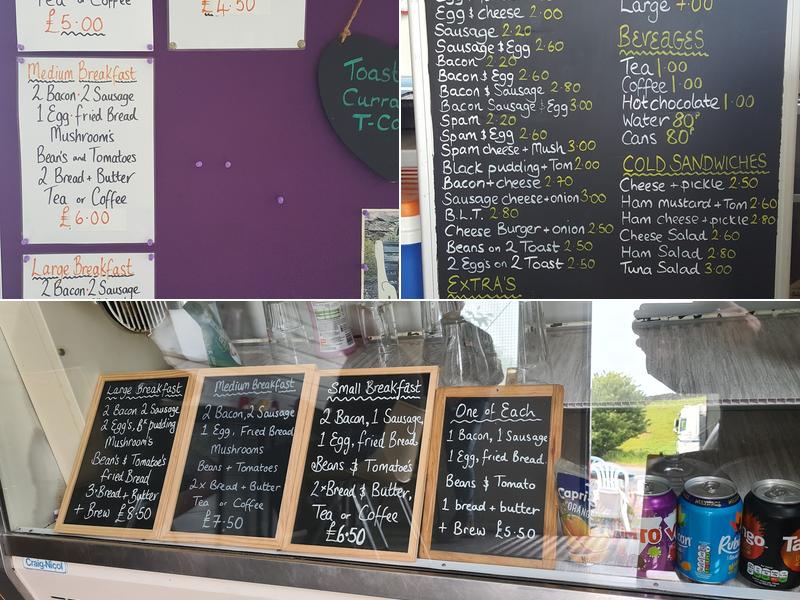 Tea or Coffee
£5.00
£4.50
Medium Breakfast
2 Bacon·2 Sausage
1 Egg·fried Bread
Mushroom's
Bean's and Tomatoes
2 Bread + Butter
Tea or Coffee
£6.00
Large Breakfast
2 Bacon·2 Sausage
Toast
T-Ca
Egg & cheese 2.00
Sausage 2.20
Sausage & Egg 2.60
Bacon 2.20
Bacon & Egg 2.60
Bacon & Sausage 2.80
Bacon Sausage & Egg 3.00
Spam 2.20
Spam & Egg 2.60
Spam cheese + Mush 3.00
Black pudding + Tom 2.00
Bacon + cheese 2.70
Sausage cheese + onion 3.00
B.L.T. 2.80
Cheese Burger + onion 2.50
Beans on 2 Toast 2.50
2 Egg's on 2 Toast 2.50
EXTRA'S
Large 7.00
BEVEAGES
Tea 1.00
Coffee 1.00
Hotchocolate 1.00
Water 80p
Cans 80p
COLD SANDWICHES
Cheese + pickle 2.50
Ham mustard + Tom 2.60
Ham cheese + pickle 2.80
Cheese Salad 2.60
Ham Salad 2.80
Tuna Salad 3.00
Large Breakfast
2 Bacon 2 Sausage
2 Egg's, Bk pudding
Mushroom's
Bean's & Tomatoe's
fried Bread
3 Bread + Butter
+ Brew £8.50
Medium Breakfast
2 Bacon, 2 Sausage
1 Egg, Fried Bread
Mushrooms
Beans + Tomatoes
2x Bread + Butter
Tea or Coffee
£7.50
Small Breakfast
2 Bacon, 1 Sausage,
1 Egg, fried Bread,
Beans & Tomatoe's
2x Bread & Butter,
Tea or Coffee
£6.50
One of Each
1 Bacon, 1 Sausage
1 Egg, fried Bread.
Beans & Tomato
1 bread + butter
+ Brew £5.50
Craig-Nicol
Capri
ORANGE
Rub
Ta